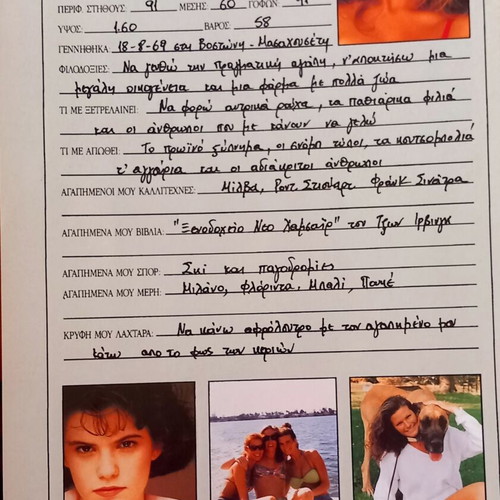 ΠΕΡΙΦ. ΣΤΗΘΟΥΣ: 91 ΜΕΣΗΣ: 60 ΓΟΦΩΝ: 91
ΥΨΟΣ: 1.60 ΒΑΡΟΣ: 58
ΓΕΝΝΗΘΗΚΑ: 18-8-69 στη Βοστώνη-Μασαχουσέτη
ΦΙΛΟΔΟΞΙΕΣ: Να βρω την πραγματική αγάπη, ν'αποκτήσω μια
μεγάλη οικογένεια και μια φάρμα με πολλά ζώα
ΤΙ ΜΕ ΞΕΤΡΕΛΑΙΝΕΙ: Να φορώ αντρικά ρούχα, τα παθιάρικα φιλιά
και οι άνθρωποι που με κάνουν να γελώ
ΤΙ ΜΕ ΑΠΩΘΕΙ: Το πρωϊνό ξύπνημα, οι σνόμπ τύποι, τα κουτσομπολιά
τ'αγγούρια και οι αδιάκριτοι άνθρωποι
ΑΓΑΠΗΜΕΝΟΙ ΜΟΥ ΚΑΛΛΙΤΕΧΝΕΣ: Μίλβα, Ροντ Στιούαρτ Φρανκ Σινάτρα
ΑΓΑΠΗΜΕΝΑ ΜΟΥ ΒΙΒΛΙΑ: "Ξενοδοχείο Νεο Χαμσαϊρ" του Τζων Ιρβινγκ
ΑΓΑΠΗΜΕΝΑ ΜΟΥ ΣΠΟΡ: Σκι και παγοδρομίες
ΑΓΑΠΗΜΕΝΑ ΜΟΥ ΜΕΡΗ: Μιλάνο, Φλόριντα, Μπαλί,
ΚΡΥΦΗ ΜΟΥ ΛΑΧΤΑΡΑ: Να κάνω αφρόλουτρο με τον αγαπημένο μου
κάτω απο το φως των κεριών